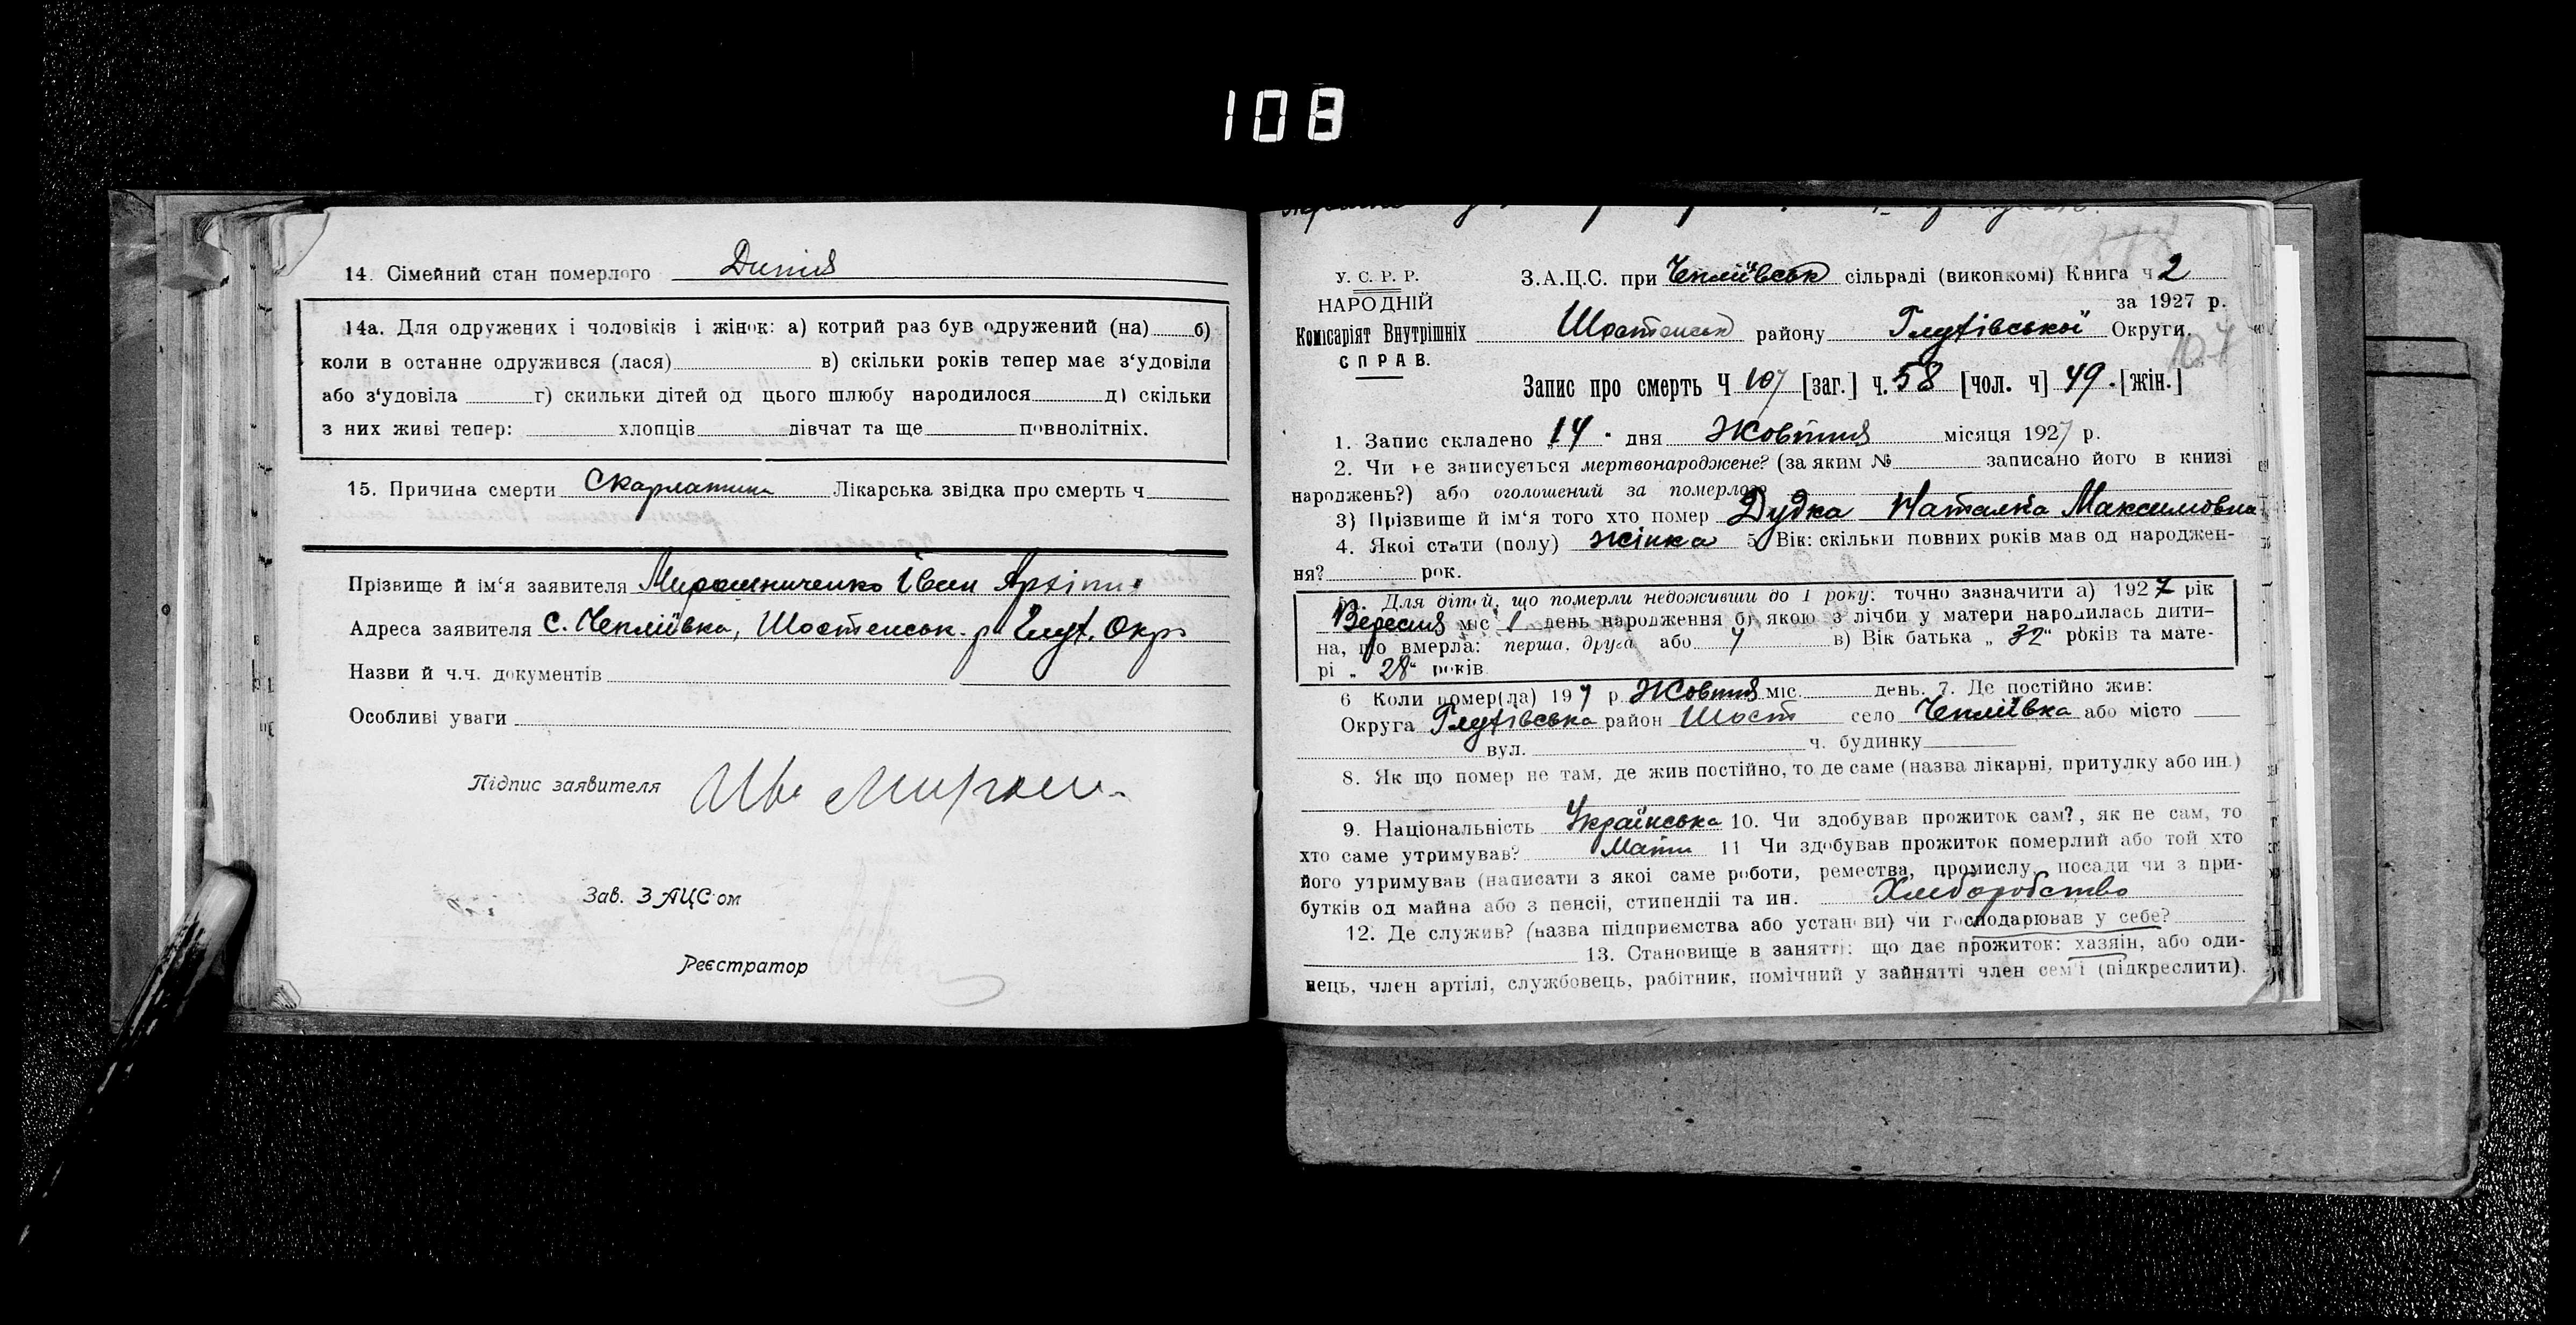 108
14. Сімейний стан померлого Дитя
14а. Для одружених і чоловіків і жінок: а) котрий раз був одружений (на) б)
коли в останне одружився (лася) в) скільки років тепер має з‘удовіли
або з‘удовіла г) скильки дітей од цього шлюбу народилося д) скільки
з них живі тепер: хлопців дівчат та ще повнолітніх.
15. Причина смерти Скарлатина Лікарська звідка про смерть ч
Прізвище й ім‘я заявителя Мирошниченко Іван Архіпів
Адреса заявителя с. Чепліївка, Шостенськ. р. Глух. Окр.
Назви й ч.ч. документів
Особливі уваги
Підпис заявителя Ив Мирош.
Зав. ЗАЦС‘ом
Реєстратор
У. С. Р. Р.
НАРОДНІЙ
Комісаріят Внутрішніх
СПРАВ.
З.А.Ц.С. при Чепліївськ сільраді (виконкомі) Книга ч 2
за 1927 р.
Шостенськ району Глухівської Округи.
107
Запис про смерть Ч 107 [заг.] ч. 58 [чол. ч] 49. [жін.]
1. Запис складено „14" дня Жовтня місяця 1927 р.
2. Чи не записується мертвонароджене? (за яким № записано його в книзі
народжень?) або оголошений за померлого
3) Прізвище й ім‘я того хто помер Дудка Наталка Максимовна
4. Якої стати (полу) жінка 5. Вік: скільки повних років мав од народжен-
ня? рок.
Для дітей, що померли недоживши до 1 року: точно зазначити а) 1927 рік
Вересня міс 1 день народження б) якою з лічби у матери народилась дити-
на, що вмерла: перша, друга або 4 в) Вік батька „ 32“ років та мате-
рі „ 28“ років.
6 Коли помер(ла) 197 р. Жовтня міс. день. 7. Де постійно жив:
Округа Глухівська район Шост село Чепліївка або місто
вул. ч. будинку
8. Як що помер не там, де жив постійно, то де саме (назва лікарні, притулку або ин.)
9. Національність Українська 10. Чи здобував прожиток сам?, як не сам, то
хто саме утримував? Мати 11 Чи здобував прожиток померлий або той хто
його утримував (написати з якої саме роботи, ремества, промислу, посади чи з при-
бутків од майна або з пенсії, стипендії та ин. Хліборобство
12. Де служив? (назва підприємства або установи) чи господарював у себе?
13. Становище в занятті: що дає прожиток: хазяїн, або оди-
нець, член артілі, службовець, рабітник, помічний у зайнятті член сем‘ї (підкреслити).